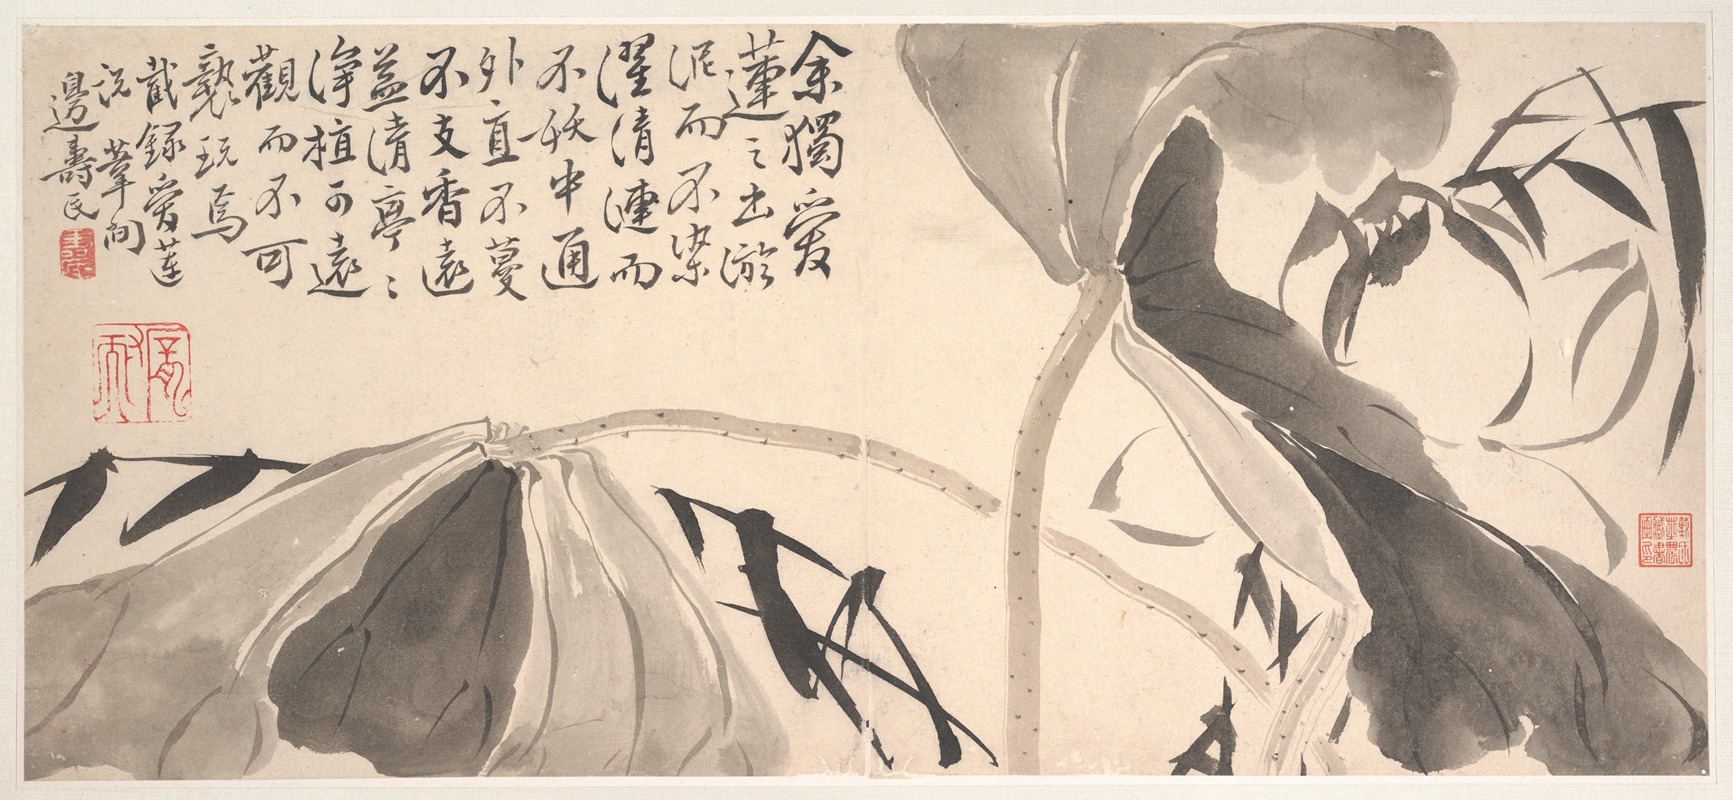 余獨愛
蓮之出淤
泥而不染
濯清漣而
不妖中通
外直不蔓
不支香遠
益清亭〻
淨植可遠
觀而不可
褻玩焉
截録愛蓮
說 葦間
邊壽民